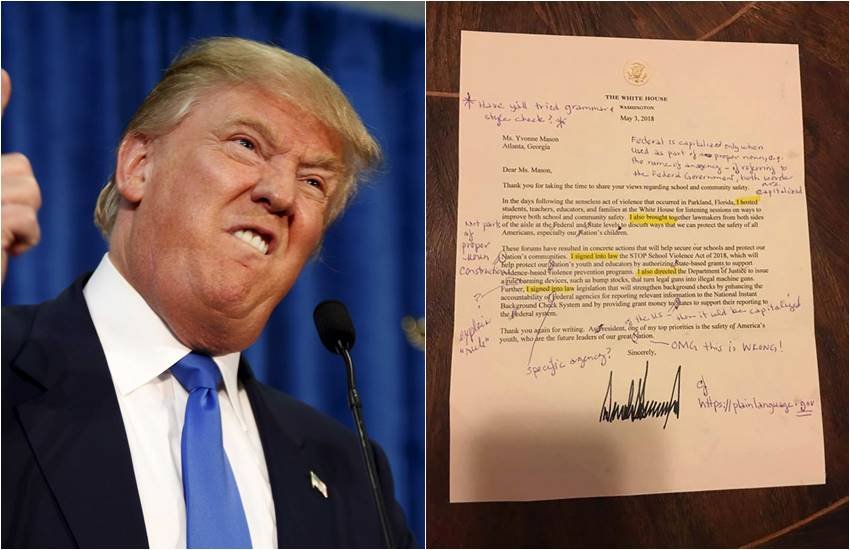 THE WHITE HOUSE
WASHINGTON
* Have y'all tried grammar &
style check? *
May 3, 2018
Ms. Yvonne Mason
Atlanta, Georgia
Federal is capitalized only when
used as part of proper noun, e.g.
the name of an agency - if referring to
the Federal Government, both words
are
capitalized
Dear Ms. Mason,
Thank you for taking the time to share your views regarding school and community safety.
In the days following the senseless act of violence that occurred in Parkland, Florida, I hosted
students, teachers, educators, and families at the White House for listening sessions on ways to
improve both school and community safety. I also brought together lawmakers from both sides
of the aisle at the Federal and State levels to discuss ways that we can protect the safety of all
Americans, especially our Nation's children.
Not part
of
proper
noun
construction
These forums have resulted in concrete actions that will help secure our schools and protect our
Nation's communities. I signed into law the STOP School Violence Act of 2018, which will
help protect our Nation's youth and educators by authorizing State-based grants to support
evidence-based violence prevention programs. I also directed the Department of Justice to issue
a rule banning devices, such as bump stocks, that turn legal guns into illegal machine guns.
Further, I signed into law legislation that will strengthen background checks by enhancing the
accountability of Federal agencies for reporting relevant information to the National Instant
Background Check System and by providing grant money to States to support their reporting to
the Federal system.
?
explain
"rule"
of the US - then it would be capitalized
Thank you again for writing. As President, one of my top priorities is the safety of America's
youth, who are the future leaders of our great Nation.
OMG this is WRONG!
specific agency?
Sincerely,
https://plainlanguage.gov